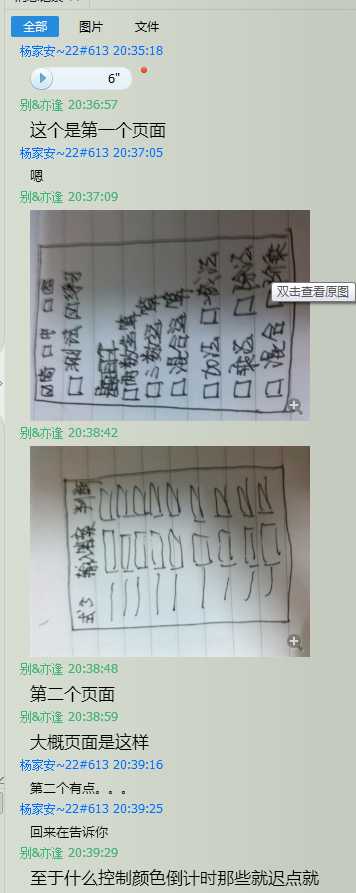 全部 图片 文件
杨家安~22#613 20:35:18
6"
别&亦逢 20:36:57
这个是第一个页面
杨家安~22#613 20:37:05
嗯
别&亦逢 20:37:09
测试 练习
两数运算
三数运算
混合运算
加法 减法
乘法 除法
混合
双击查看原图
别&亦逢 20:38:42
式子 输入答案 判断
别&亦逢 20:38:48
第二个页面
别&亦逢 20:38:59
大概页面是这样
杨家安~22#613 20:39:16
第二个有点。。。
杨家安~22#613 20:39:25
回来在告诉你
别&亦逢 20:39:29
至于什么控制颜色倒计时那些就迟点就